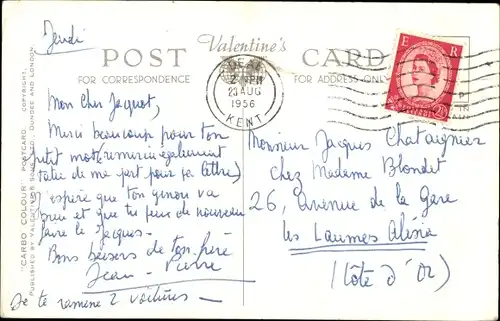 Jeudi
Valentine's
POST CARD
FOR CORRESPONDENCE
FOR ADDRESS ONLY
DEAL
2 PM
23 AUG
1956
KENT
E R
Mon Cher Jacquot,
Merci beaucoup pour ton
petit mot (remercie également
tatie de ma part pour sa lettre)
J'espère que ton genou va
mieux et que tu peux de nouveau
faire le Jacques -
Bons baisers de ton frère
Jean-Pierre
Je te ramène 2 voitures -
Monsieur Jacques Chataignier
chez Madame Blondet
26, Avenue de la Gare
les Laumes Alésia
(Côte d'Or)
"CARBO COLOUR" POSTCARD. COPYRIGHT.
PUBLISHED BY VALENTINE & SONS LTD., DUNDEE AND LONDON.